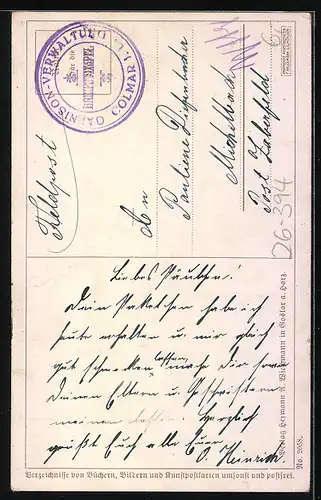 GARNISON-VERWALTUNG COLMAR i. E.
Für die
Feldpost
An
Pauliene Diefenbacher
Michelbach
Post Zaberfeld
26-394
Liebes Päulchen!
Dein Paketchen habe ich
heute erhalten u. mir gleich
gut schmecken lassen, 
Deinen Eltern u. Geschwistern
meinen besten. Herzlich
grüßt Euch alle Euer
O. Heinrich.
Verlag Hermann A. Wiechmann in Goslar a. Harz.
No. 2058.
Verzeichnisse von Büchern, Bildern und Kunstpostkarten umsonst und postfrei.